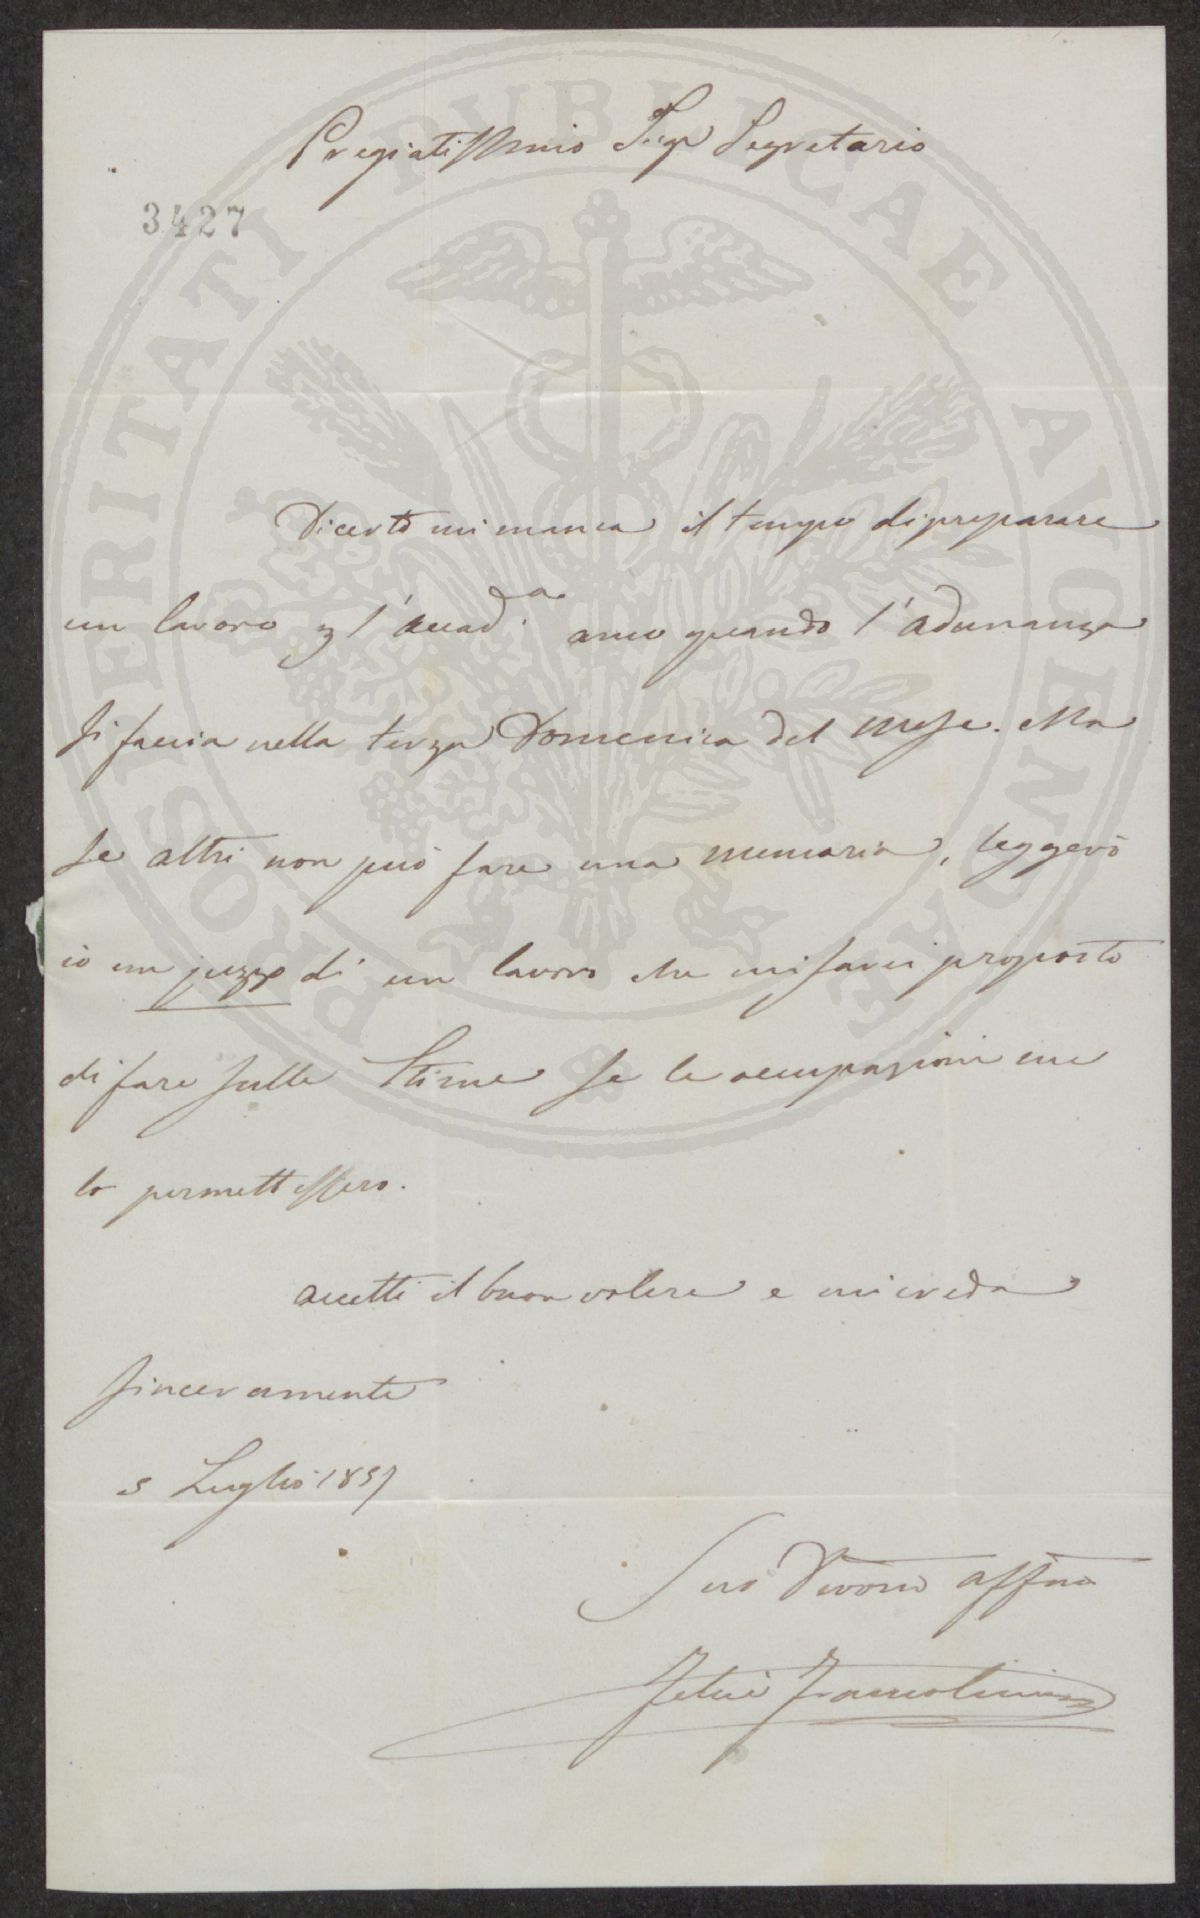 Pregiatissimo Sigr Segretario
3427
Di certo mi manca il tempo di preparare
un lavoro l'accad.a anco quando l'adunanza
si faccia nella terza Domenica del mese. Ma
se altri non può fare una memoria, leggerò
io un pezzo di un lavoro che mi sarei proposto
di fare sulle Stime se le occupazioni me
lo permettessero.
Accetti il buon volere e mi creda
sinceramente
5 Luglio 1857
Suo Devmo affmo
Felice Francolini
PROSPERITATI PUBLICAE AUGENDAE